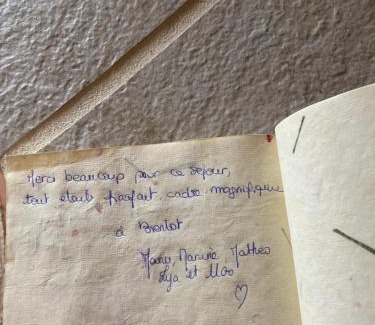 Merci beaucoup pour ce séjour,
tout était parfait, cadre magnifique
à Bientot
Marine Mathéo
Lya et